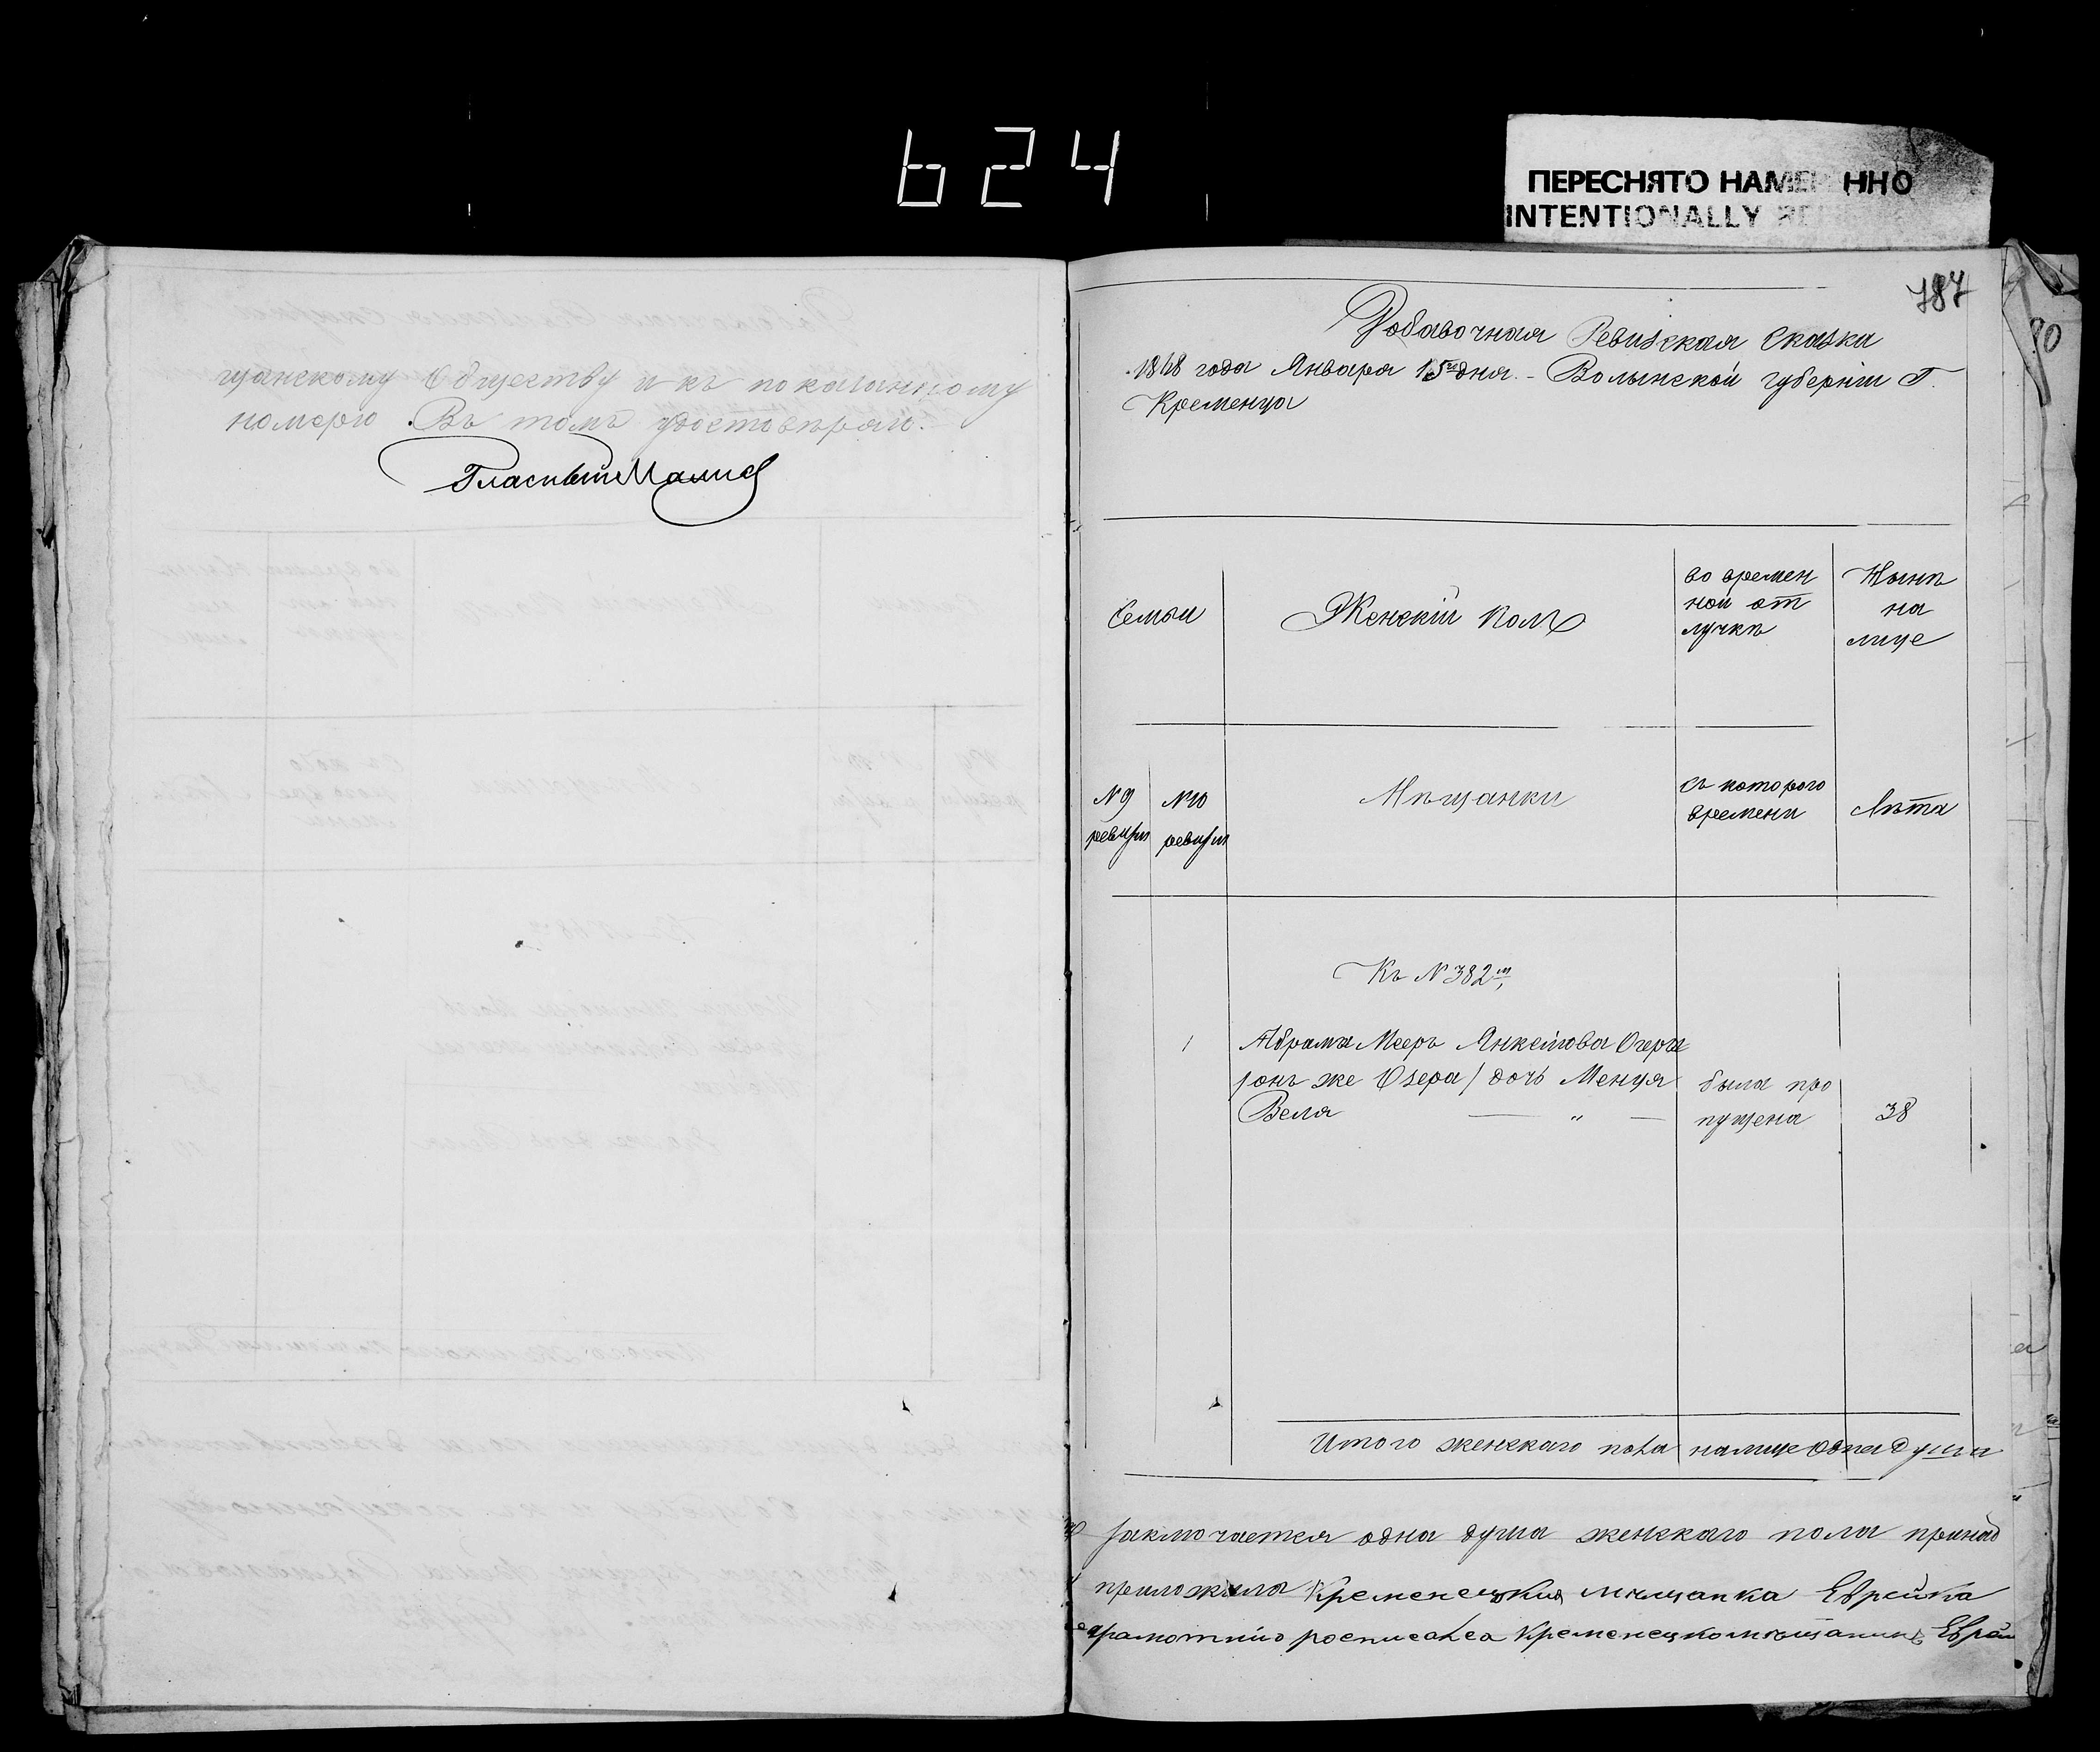 624
ПЕРЕСНЯТО НАМЕР ННО
INTENTIONALLY
щанскому Обществу и къ показанному
номерю. Въ томъ удостовѣряю.
Гласный
787
Добавочная Ревизская Сказка
1868 года Января 15го дня. – Волынской губерніи Г.
Кременца
Семьи
Женскій полъ
во времен
ной от
лучкѣ
Нынѣ
на
лице
N 9
ревизіи
N 10
ревизіи
Мѣщанки
съ котораго
времени
Лѣта
Къ N 382му
1
Абрама Меера Янкелева
/онъ же Озера/ дочь Менця
Веля — „ —
была про
пущена
38
Итого женскаго пола на лице одна душа
заключается одна душа женскаго пола принад
приложила Кременецкая мѣщанка Еврейка
росписался Кременецкой мѣщанинъ Еврей